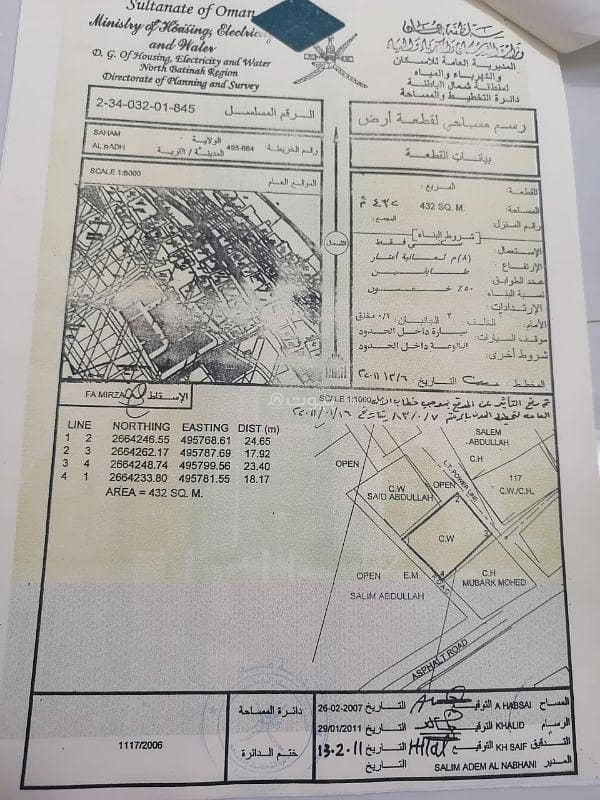 Sultanate of Oman
Ministry of Housing, Electricity
and Water
D. G. Of Housing, Electricity and Water
North Batinah Region
Directorate of Planning and Survey
سلطنة عمان
المديرية العامة للاسكان
والكهرباء والمياه
لمنطقة شمال الباطنة
دائرة التخطيط والمساحة
2-34-032-01-845 الرقم المسلسل
SAHAM الولاية
495-664 رقم الخريطة
المدينة / القرية
SCALE 1:5000 الموقع العام
الشمال
رسم مساحي لقطعة أرض
بيانات القطعة
القطعة: المربع:
المساحة: 432 SQ. M. ٤٣٢ م
رقم المنزل المجمع:
شروط البناء
الاستعمال: سكني فقط
الإرتفاع: (٨) م ثمانية أمتار
عدد الطوابق: طابقين
نسبة البناء: ٥٠٪ خمسون
الإرتدادات:
الأمام: الخلف: ٣ الجانبان:
موقف السيارات: سيارة داخل الحدود
شروط أخرى: البالوعة داخل الحدود
المخطط: التاريخ:
FA MIRZA الإسقاط
SCALE 1:1000
LINE NORTHING EASTING DIST (m)
1 2 2664246.55 495768.61 24.65
2 3 2664262.17 495787.69 17.92
3 4 2664248.74 495799.56 23.40
4 1 2664233.80 495781.55 18.17
AREA = 432 SQ. M.
SALEM
ABDULLAH
C.H
OPEN
L.T. POWER LINE
117
C.W./C.H.
C.W
SAID ABDULLAH
OPEN
2
3
C.W
1
4
OPEN
E.M
C.H
MUBARK MOHED
SALIM ABDULLAH
ROAD
ASPHALT ROAD
1117/2006
دائرة المساحة
ختم الدائرة
26-02-2007 التاريخ التوقيع A HABSAI المساح
29/01/2011 التاريخ التوقيع KHALID الرسام
13-2-11 التاريخ Hilal التوقيع KH SAIF التدقيق
التاريخ SALIM ADEM AL NABHANI المدير